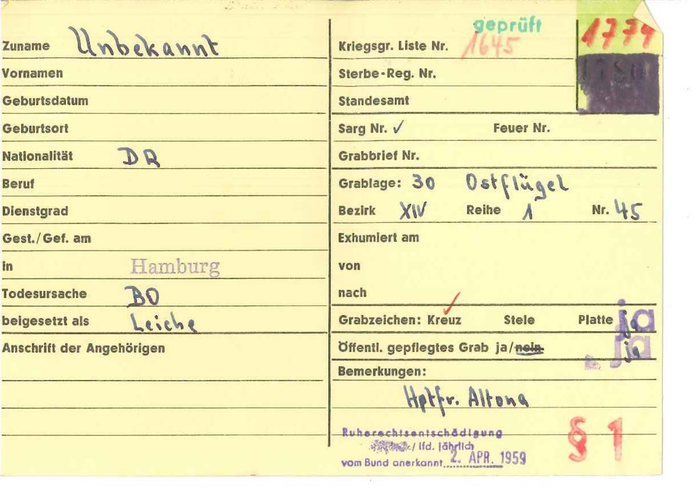 Zuname Unbekannt
Vornamen
Geburtsdatum
Geburtsort
Nationalität DR
Beruf
Dienstgrad
Gest./Gef. am
in Hamburg
Todesursache BO
beigesetzt als Leiche
Anschrift der Angehörigen
geprüft
1774
Kriegsgr. Liste Nr. 1645
Sterbe-Reg. Nr.
Standesamt
Sarg Nr. ✓ Feuer Nr.
Grabbrief Nr.
Grablage: 30 Ostflügel
Bezirk XIV Reihe 1 Nr. 45
Exhumiert am
von
nach
Grabzeichen: Kreuz ✓ Stele Platte ja
Öffentl. gepflegtes Grab ja/nein ja
Bemerkungen:
Hptfr. Altona
Ruherechtsentschädigung
/ lfd. jährlich
vom Bund anerkannt 2. APR. 1959
§ 1